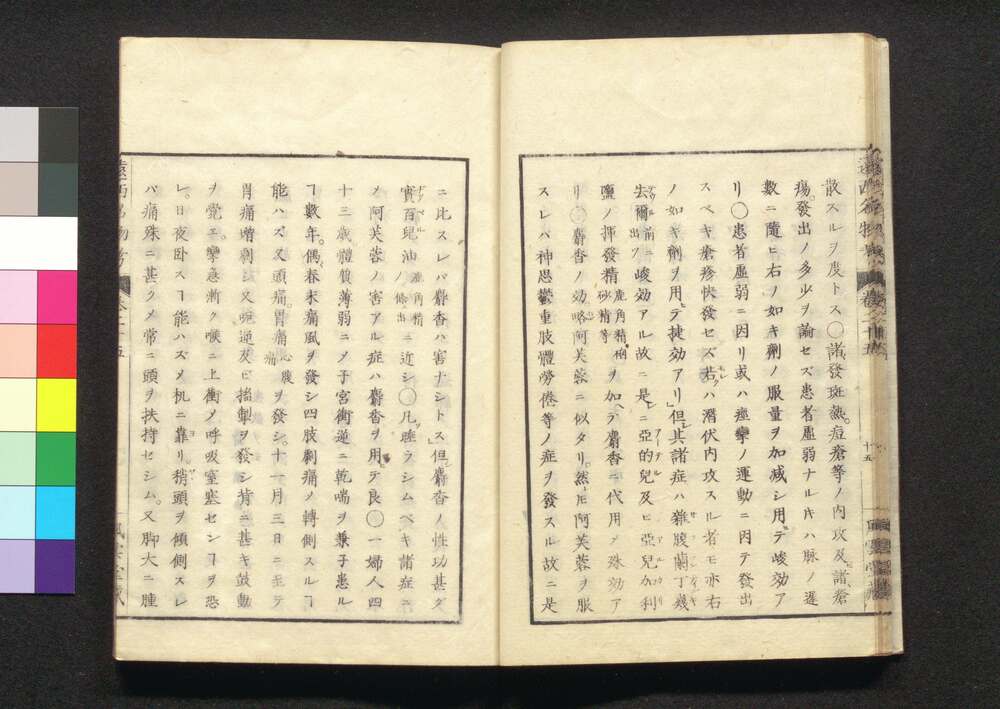 散スルヲ度トス〇諸發斑熱。痘瘡等ノ内攻及諸瘡
瘍。發出ノ多少ヲ諭セズ患者虚弱ナルキハ脉ノ遅
數ニ隨ヒ右ノ如キ劑ノ服量ヲ加减シ用テ峻効ア
リ〇患者虚弱ニ因リ或ハ痙攣ノ運動ニ因テ發出
スベキ瘡疹快發セズ若クハ潜伏内攻スル者モ亦右
ノ如キ劑ヲ用テ捷効アリ」但其諸症ハ雜腹蘭丁幾
去爾 前ニ出ヅ ニ峻効アル故ニ是レニ亞的兒及ヒ亞兒加利
鹽ノ揮發精 鹿角精 砂精等 ヲ加ヘテ麝香ニ代用メ殊効ア
リ〇麝香ノ効略阿芙蓉ニ似タリ。然ヒ阿芙蓉ヲ服
スレバ神思鬱重肢體勞倦等ノ症ヲ發スル故ニ是
ニ比スレバ麝香ハ害ナシトス」但麝香ノ性功甚ダ
實百兒油 鹿角精ノ條ニ出 ニ近シ〇凡睡ラシムベキ諸症ニ
メ阿芙蓉ノ害アル症ハ麝香ヲ用テ良〇一婦人四
十三歳。體質薄弱ニメ子宮衝逆ニ乾喘ヲ兼子患ル
ヿ數年。偶春末痛風ヲ發シ四肢刺痛ノ轉側スルヿ
能ハズ又頭痛胃痛 心腹痛 ヲ發シ。十一月三日ニ至テ
胃痛増劇シ又噦逆及ビ搐掣ヲ發シ背ニ甚キ鼓動
ヲ覺エ。攣急漸ク喉ニ上衝メ呼吸窒塞センヿヲ恐
レ。日夜卧スヿ能ハズメ机ニ靠リ稍頭ヲ傾側スレ
バ痛殊ニ甚クメ常ニ頭ヲ扶持セシム。又脚大ニ腫